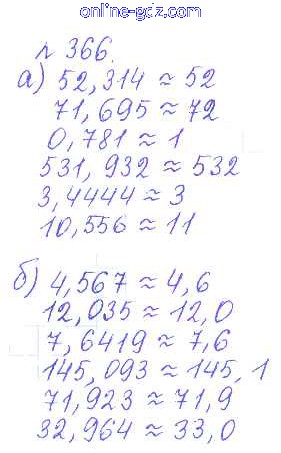 online-gdz.com
№ 366.
а) 52,314 ≈ 52
71,695 ≈ 72
0,781 ≈ 1
531,932 ≈ 532
3,4444 ≈ 3
10,556 ≈ 11
б) 4,567 ≈ 4,6
12,035 ≈ 12,0
7,6419 ≈ 7,6
145,093 ≈ 145,1
71,923 ≈ 71,9
32,964 ≈ 33,0